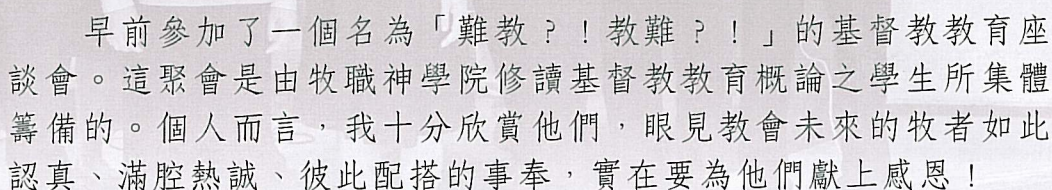 早前參加了一個名為「難教？！教難？！」的基督教教育座
談會。這聚會是由牧職神學院修讀基督教教育概論之學生所集體
籌備的。個人而言，我十分欣賞他們，眼見教會未來的牧者如此
認真、滿腔熱誠、彼此配搭的事奉，實在要為他們獻上感恩！